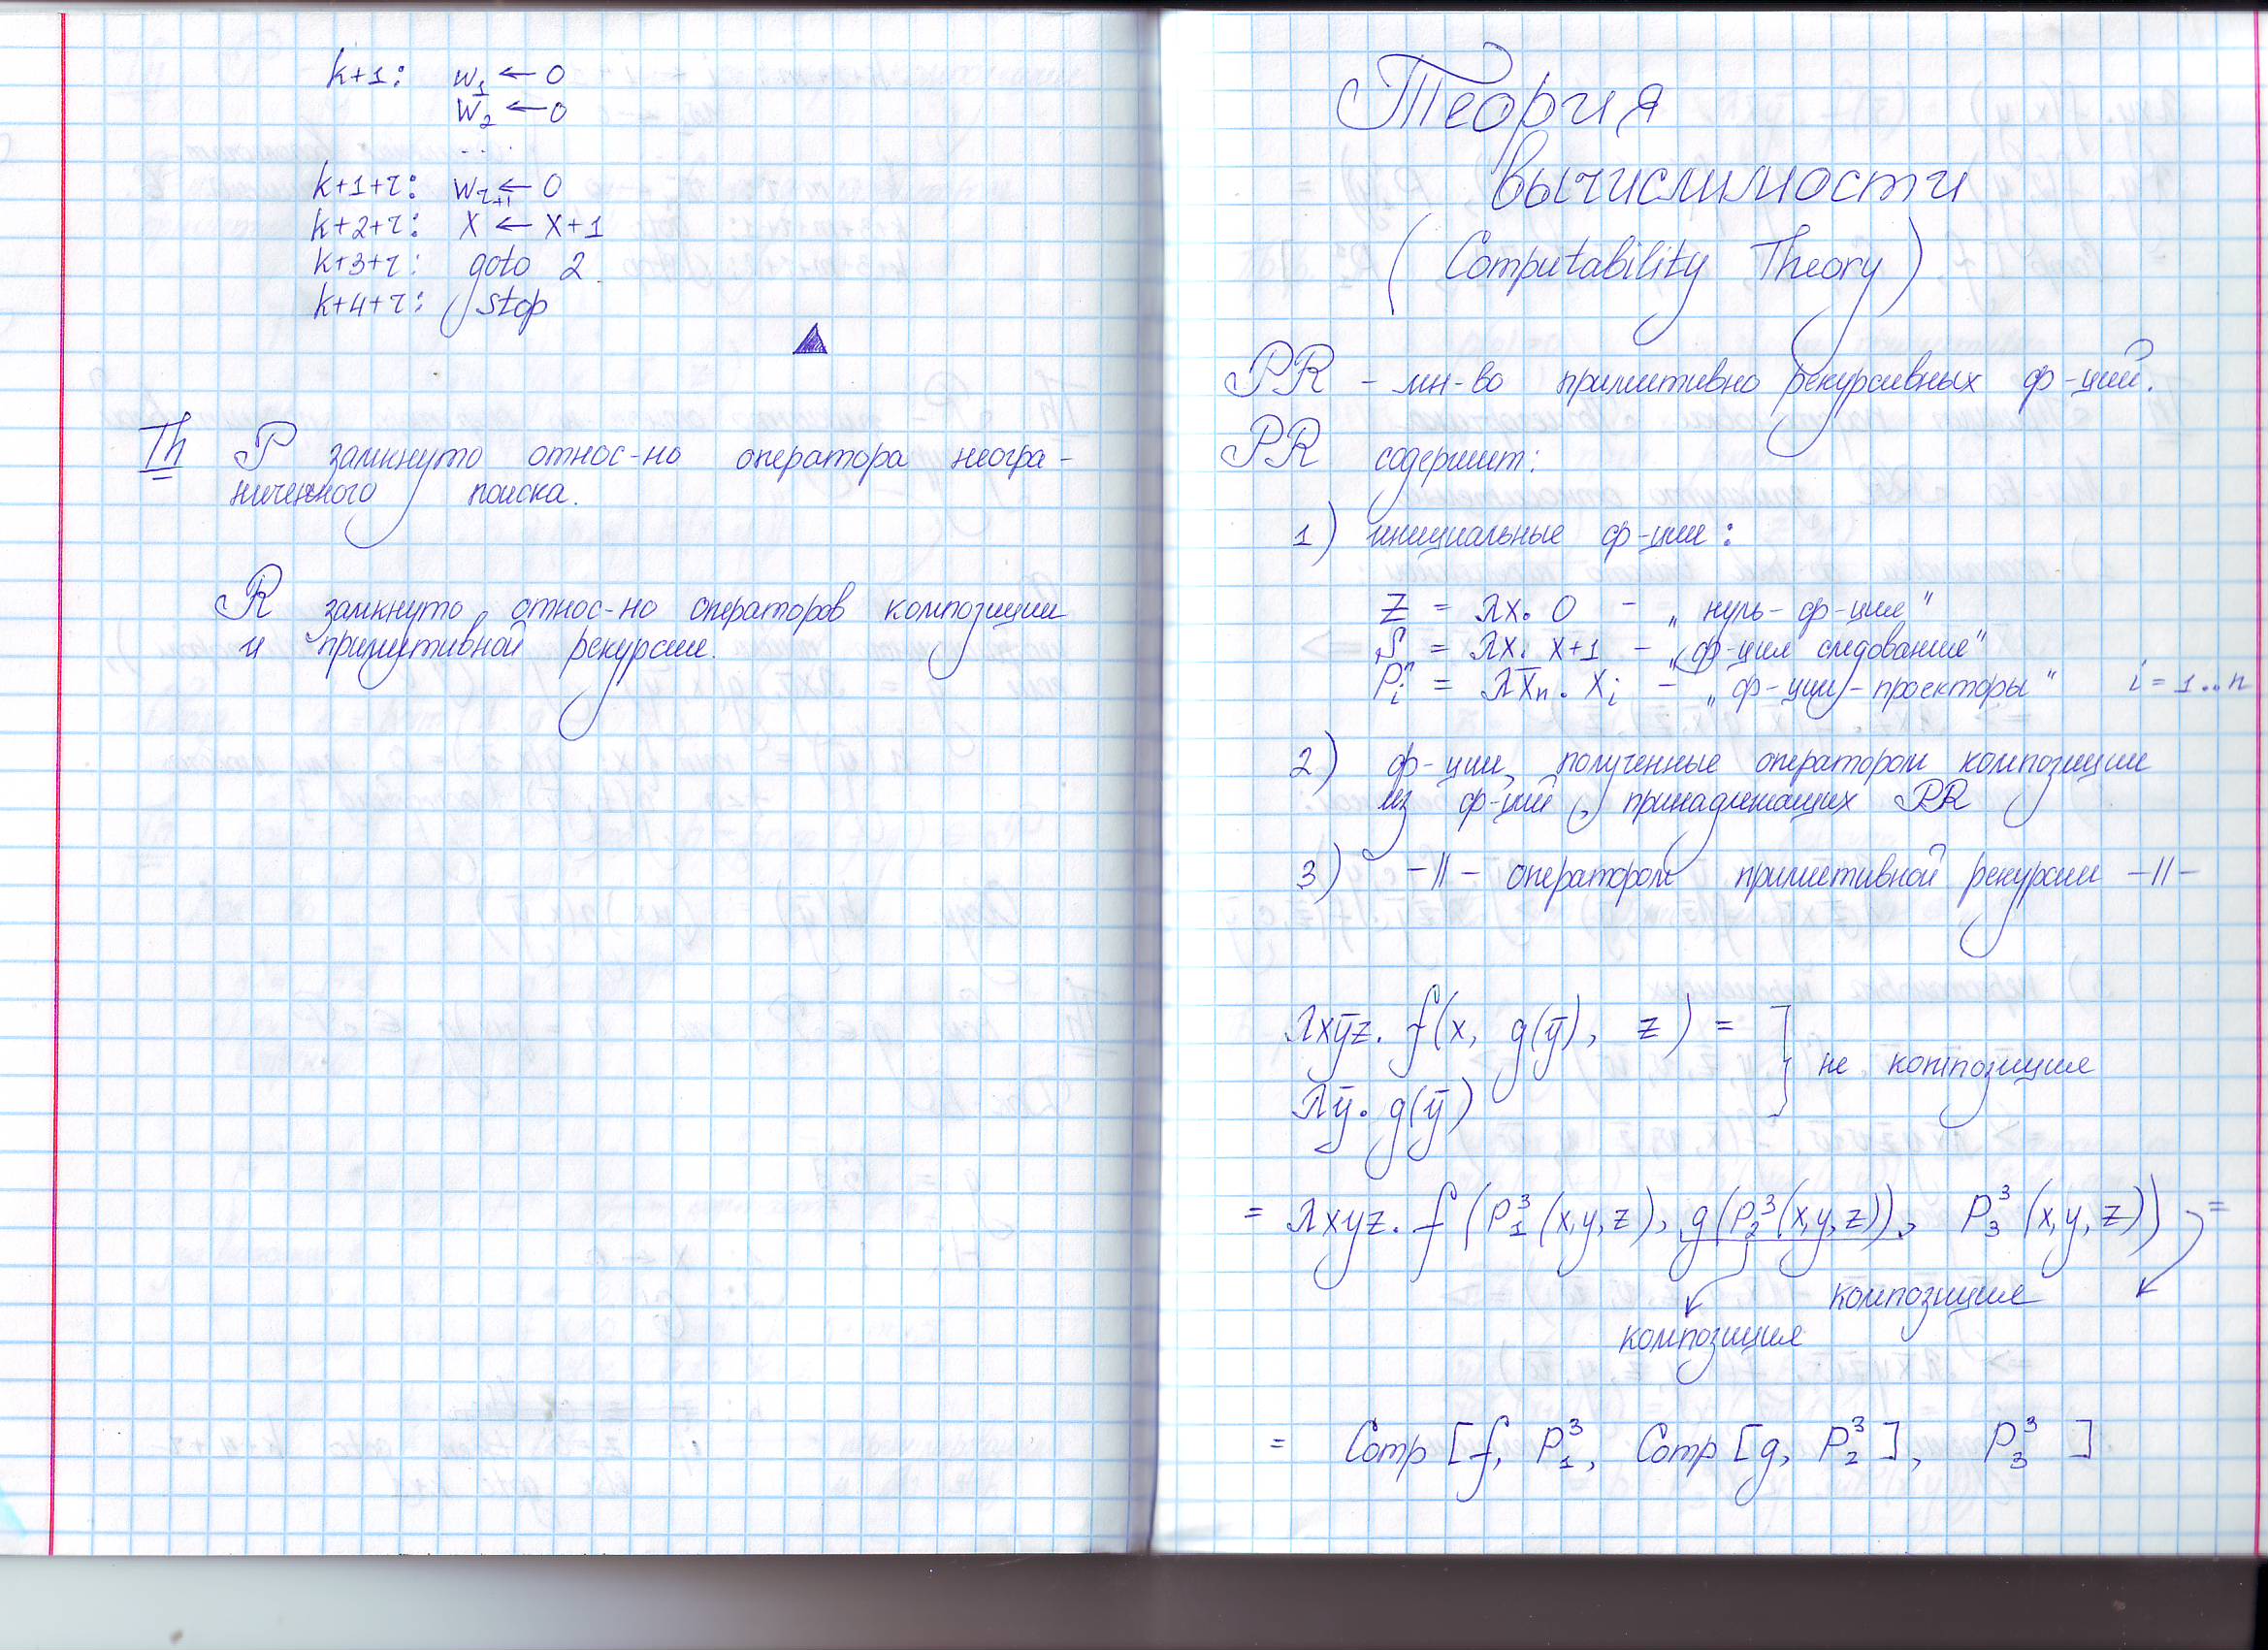 k+1: w₁ ← 0
w₂ ← 0
....
k+1+r: w_{r+1} ← 0
k+2+r: x ← x+1
k+3+r: goto 2
k+4+r: stop
Th P замкнуто относ-но оператора неогра-
ниченного поиска.
R замкнуто относ-но операторов композиции
и примитивной рекурсии.
Теория
вычислимости
( Computability Theory )
PR – мн-во примитивно рекурсивных ф-ций.
PR содержит:
1) инициальные ф-ции:
Z = λx. 0 – „нуль-ф-ция“
S = λx. x+1 – „ф-ция следования“
Pᵢⁿ = λx̄ₙ. xᵢ – „ф-ции-проекторы“ i = 1..n
2) ф-ции, полученные оператором композиции
из ф-ций, принадлежащих PR
3) –||– оператором примитивной рекурсии –||–
λxȳz. f(x, g(ȳ), z) =
λȳ. g(ȳ)
не композиция
= λxyz. f(P₁³(x,y,z), g(P₂³(x,y,z)), P₃³(x,y,z)) =
композиция
композиция
= Comp [f, P₁³, Comp [g, P₂³], P₃³ ]